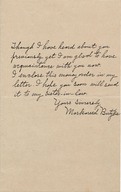 Though I have heard about you
previously yet I am glad to have
acquaintance with you now.
I enclose this money order in my
letter. I hope you soon will send
it to my
Yours Sincerely